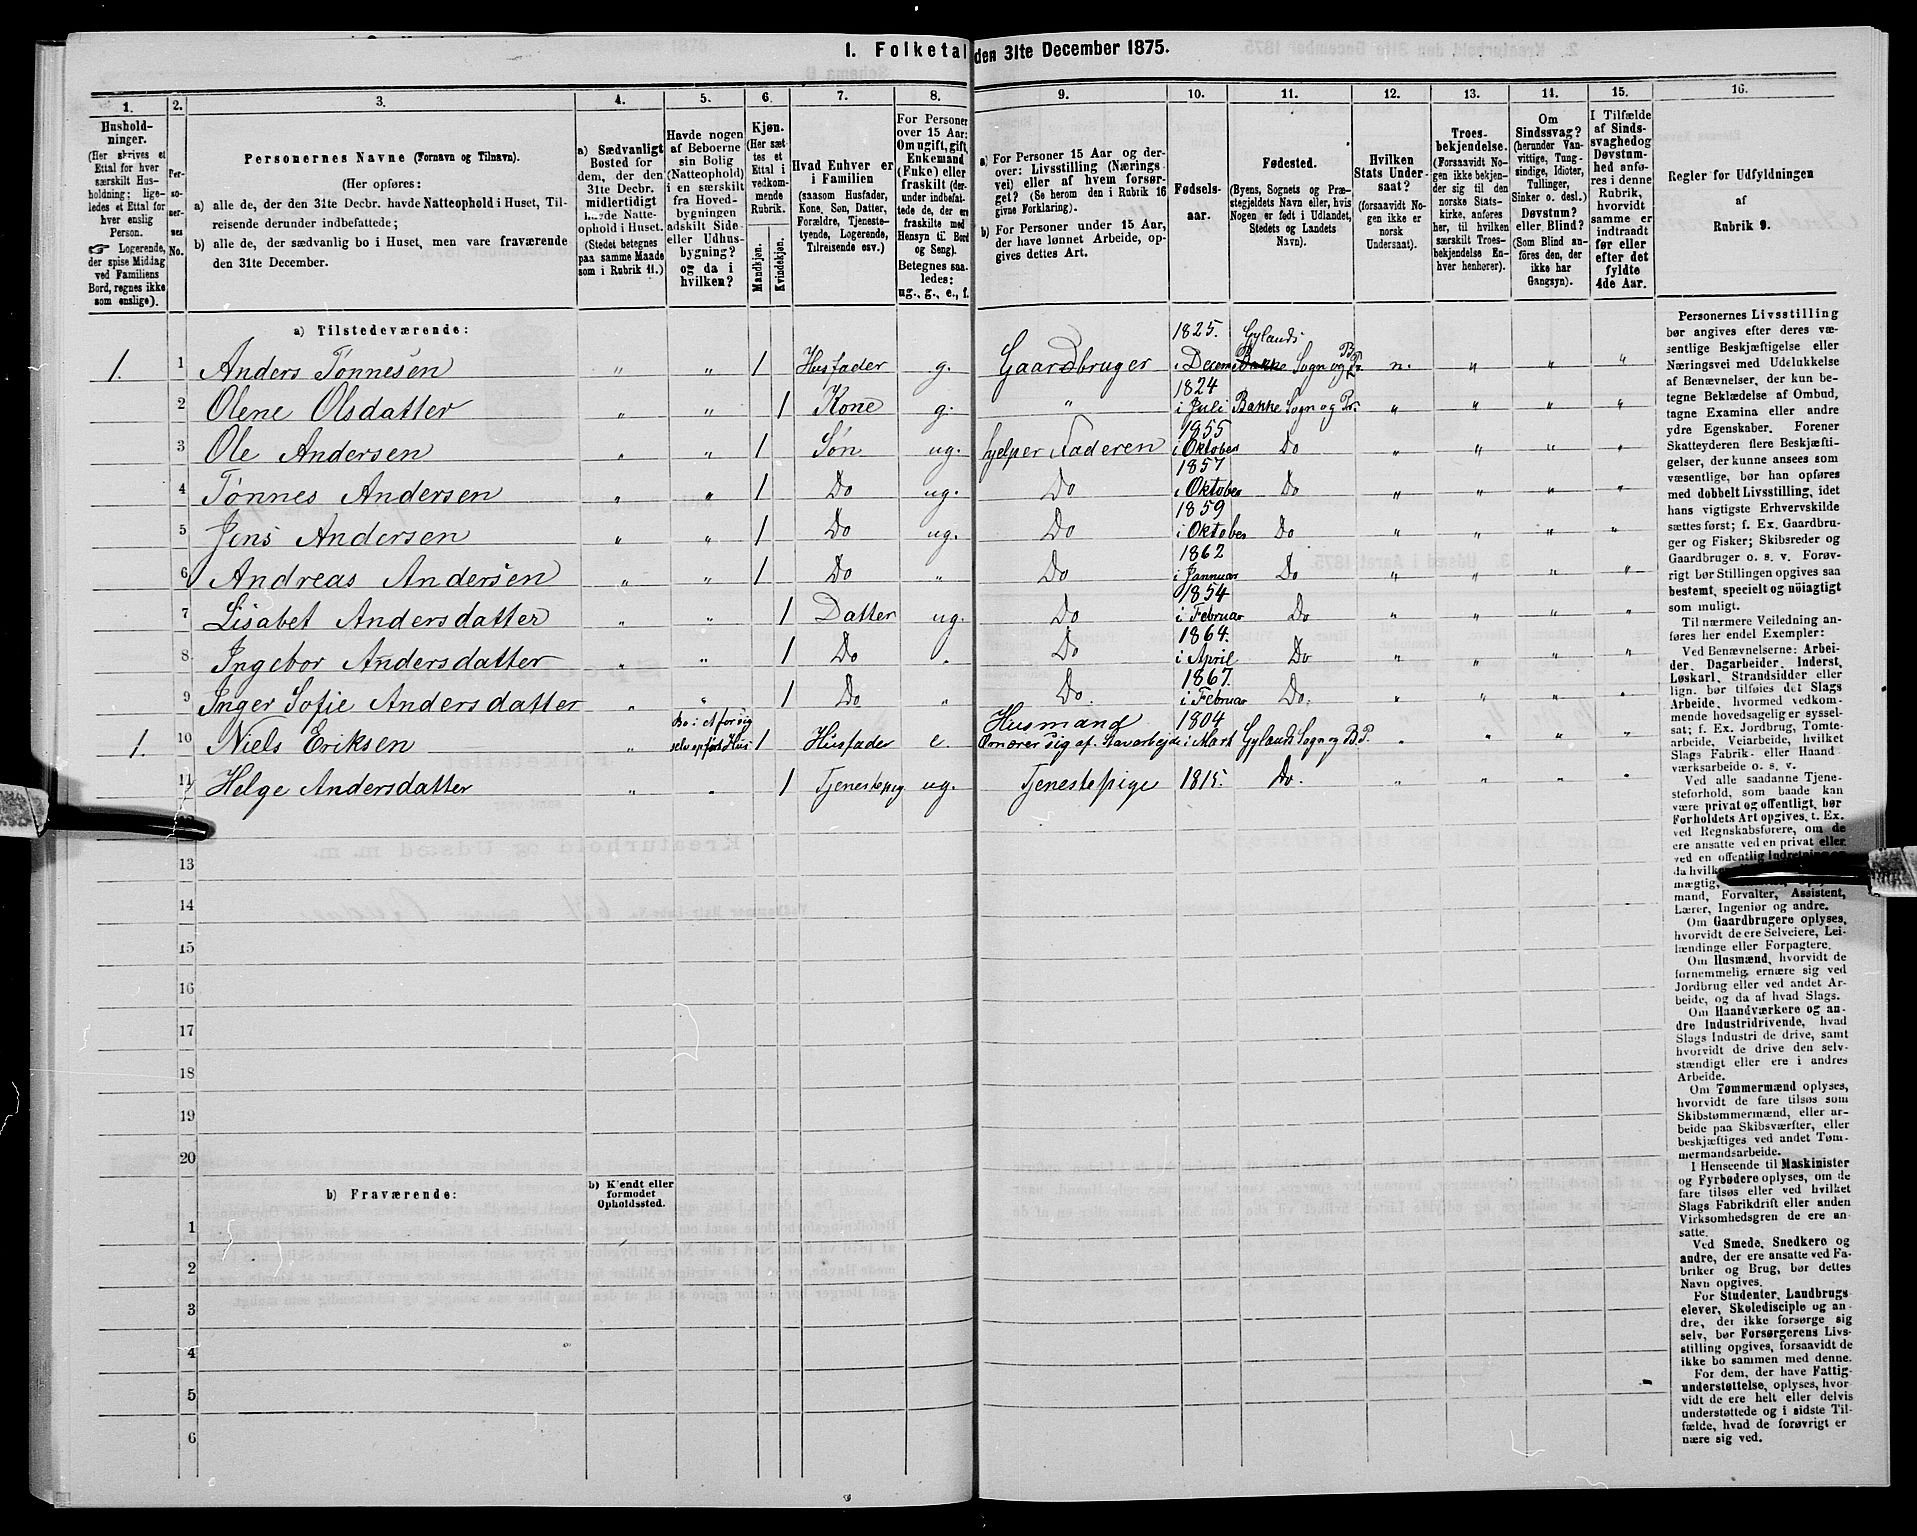 1. Folketal den 31te December 1875.
1. 2. 3. 4. 5. 6. 7. 8. 9. 10. 11. 12. 13. 14. 15. 16.
Hushold-
ninger.
(Her skrives et
Ettal for hver
særskilt Hus-
holdning; lige-
ledes et Ettal for
hver enslig
Person.
☞ Logerende,
der spise Middag
ved Familiens
Bord, regnes ikke
som enslige).
Per-
so-
ner-
nes
No.
Personernes Navne (Fornavn og Tilnavn).
(Her opføres:
a) alle de, der den 31te Decbr. havde Natteophold i Huset, Til-
reisende derunder indbefattede;
b) alle de, der sædvanlig bo i Huset, men vare fraværende
den 31te December.
a) Sædvanligt
Bosted for
dem, der den
31te Decbr.
midlertidigt
havde Natte-
ophold i Huset.
(Stedet betegnes
paa samme Maade
som i Rubrik 11.)
Havde nogen
af Beboerne
sin Bolig
(Natteophold)
i en særskilt
fra Hoved-
bygningen
adskilt Side-
eller Udhus-
bygning?
og da i
hvilken?
Kjøn.
(Her sæt-
tes et
Ettal i
vedkom-
mende
Rubrik.
Mandkjøn.
Kvindekjøn.
Hvad Enhver er
i Familien
(saasom Husfader,
Kone, Søn, Datter,
Forældre, Tjeneste-
tyende, Logerende,
Tilreisende osv.)
For Personer
over 15 Aar:
Om ugift, gift,
Enkemand
(Enke) eller
fraskilt (der-
under indbefat-
tede de, der ere
fraskilte med
Hensyn til Bord
og Seng).
Betegnes saa-
ledes:
ug., g., e., f.
a) For Personer 15 Aar og der-
over: Livsstilling (Nærings
vei) eller af hvem forsør-
get? (Se herom den i Rubrik 16
givne Forklaring).
b) For Personer under 15 Aar,
der have lønnet Arbeide, op-
gives dettes Art.
Fødsels-
aar.
Fødested.
(Byens, Sognets og Præ-
stegjeldets Navn eller, hvis
Nogen er født i Udlandet,
Stedets og Landets
Navn).
Hvilken
Stats Under-
saat?
(forsaavidt No-
gen ikke er
norsk
Undersaat).
Troes-
bekjendelse.
(Forsaavidt No-
gen ikke bekjen-
der sig til den
norske Stats-
kirke, anføres
her, til hvilken
særskilt Troes-
bekjendelse En-
hver henhører).
Om
Sindssvag?
(herunder Van-
vittige, Tung-
sindige, Idioter,
Tullinger,
Sinker o. desl.)
Døvstum?
eller Blind?
(Som Blind an-
føres den, der
ikke har
Gangsyn).
I Tilfælde
af Sinds-
svaghed og
Døvstum-
hed anfø-
res i denne
Rubrik,
hvorvidt
samme er
indtraadt
før eller
efter det
fyldte
4de Aar.
Regler for Udfyldningen
af
Rubrik 9.
a) Tilstedeværende:
1. 1 Anders Tønnesen " " 1 Husfader g. Gaardbruger 1825. i Decem Gylands Sogn og B. Pr. n. " " "
2 Olene Olsdatter " " 1 Kone g. " 1824 i Juli Bakke Sogn og Pr. " " " "
3 Ole Andersen " " 1 Søn ug. hjelper Faderen 1855 i Oktober Do " " " "
4 Tønnes Andersen " " 1 Do ug. Do 1857 i Oktober Do " " " "
5 Jens Andersen " " 1 Do ug. Do 1859 i Oktober Do " " " "
6 Andreas Andersen " " 1 Do " Do 1862 i Januar Do " " " "
7 Lisabet Andersdatter " " 1 Datter ug. Do 1854 i Februar Do " " " "
8 Ingebor Andersdatter " " 1 Do " Do 1864. i April Do " " " "
9 Inger Sofie Andersdatter " " 1 Do " Do. 1867. i Februar Do. " " " "
1. 10 Niels Eriksen " Bo: et for sig selv opført Hus 1 Husfader e. Husmand Ærnærer sig af Stavarbejde 1804 i Mart Gylands Sogn og B. P. " " " "
11 Helge Andersdatter " " 1 Tjenestepig ug. Tjenestepige 1815. Do. " " " "
13
14
15
16
17
18
19
20
b) Fraværende:
b) Kjendt eller
formodet
Opholdssted.
1
2
3
4
5
6
Personernes Livsstilling
bør angives efter deres væ-
sentlige Beskjæftigelse eller
Næringsvei med Udelukkelse
af Benævnelser, der kun be-
tegne Beklædelse af Ombud,
tagne Examina eller andre
ydre Egenskaber. Forener
Skatteyderen flere Beskjæfti-
gelser, der kunne ansees som
væsentlige, bør han opføres
med dobbelt Livsstilling, idet
hans vigtigste Erhvervskilde
sættes først; f. Ex. Gaardbru-
ger og Fisker; Skibsreder og
Gaardbruger o. s. v. Forøv-
rigt bør Stillingen opgives saa
bestemt, specielt og nöiagtigt
som muligt.
Til nærmere Veiledning an-
føres her endel Exempler:
Ved Benævnelserne: Arbei-
der, Dagarbeider, Inderst,
Løskarl, Strandsidder eller
lign. bør tilføies det Slags
Arbeide, hvormed vedkom-
mende hovedsagelig er syssel-
sat; f. Ex. Jordbrug, Tomte-
arbeide, Veiarbeide, hvilket
Slags Fabrik- eller Haand-
værksarbeide o. s. v.
Ved alle saadanne Tjene-
steforhold, som baade kan
være privat og offentligt, bør
Forholdets Art opgives, t. Ex.
ved Regnskabsførere, om de
ere ansatte ved en privat eller
ved en offentlig Indretning og
da hvilken
mægtig,
mand, Forvalter, Assistent,
Lærer, Ingeniør og andre.
Om Gaardbrugere oplyses,
hvorvidt de ere Selveiere, Lei-
lændinge eller Forpagtere.
Om Husmænd, hvorvidt de
fornemmelig ernære sig ved
Jordbrug eller ved andet Ar-
beide, og da af hvad Slags.
Om Haandværkere og an-
dre Industridrivende, hvad
Slags Industri de drive, samt
hvorvidt de drive den selv-
stændigt eller ere i andres
Arbeide.
Om Tømmermænd oplyses,
hvorvidt de fare tilsøs som
Skibstømmermænd, eller ar-
beide paa Skibsværfter, eller
beskjæftiges ved andet Tøm-
mermandsarbeide.
I Henseende til Maskinister
og Fyrbødere oplyses, om de
fare tilsøs eller ved hvilket
Slags Fabrikdrift eller anden
Virksomhedsgren de ere an-
satte.
Ved Smede, Snedkere og
andre, der ere ansatte ved Fa-
briker og Brug, bør dettes
Navn opgives.
For Studenter, Landbrugs
elever, Skoledisciple og an-
dre, der ikke forsørge sig
selv, bør Forsørgerens Livs-
stilling opgives, forsaavidt de
ikke bo sammen med denne.
For dem, der have Fattig-
understøttelse, oplyses, hvor-
vidt de ere helt eller delvis
understøttede og i sidste Til-
fælde, hvad de forøvrigt er
nære sig ved.